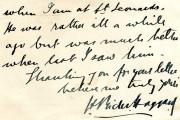 when I am at St Leonards.
He was rather ill a while
ago but was much better
when last I saw him.
Thanking you for your letter
believe me truly yours
H Rider Haggard